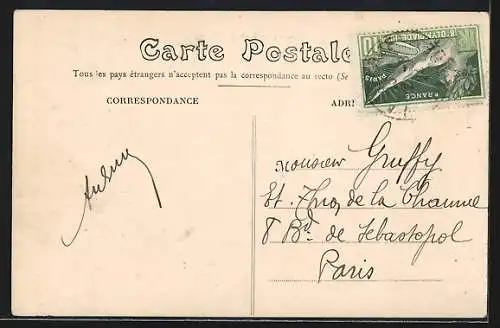 Carte Postale
Tous les pays étrangers n'acceptent pas la correspondance au recto (Se
CORRESPONDANCE
ADR
10 8e OLYMPIADE
FRANCE
PARIS
Monsieur Gruffy
de la Chaume
8 Bd. de Sebastopol
Paris